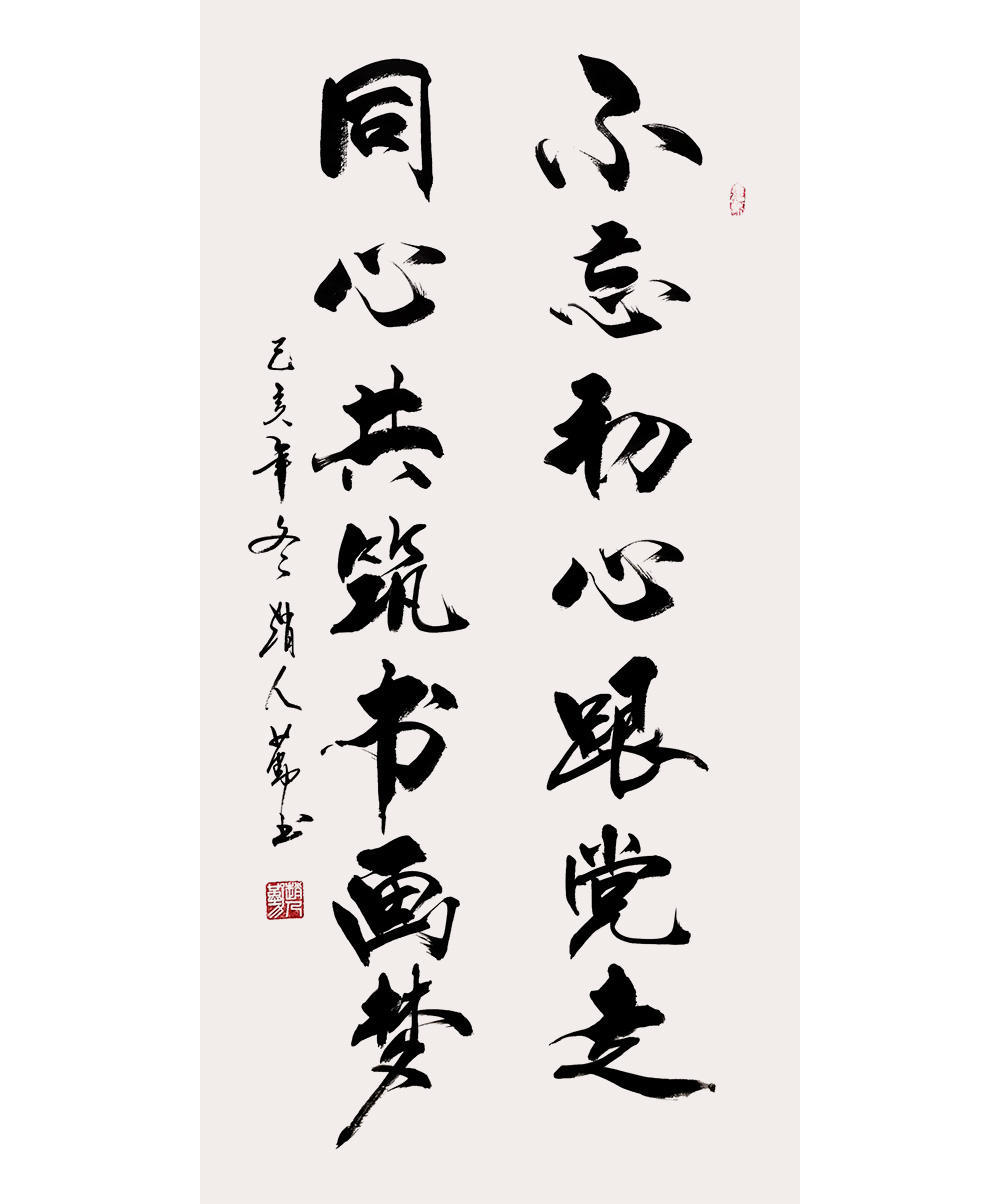 不忘初心跟党走
同心共筑书画梦
己亥年冬赵人勤书